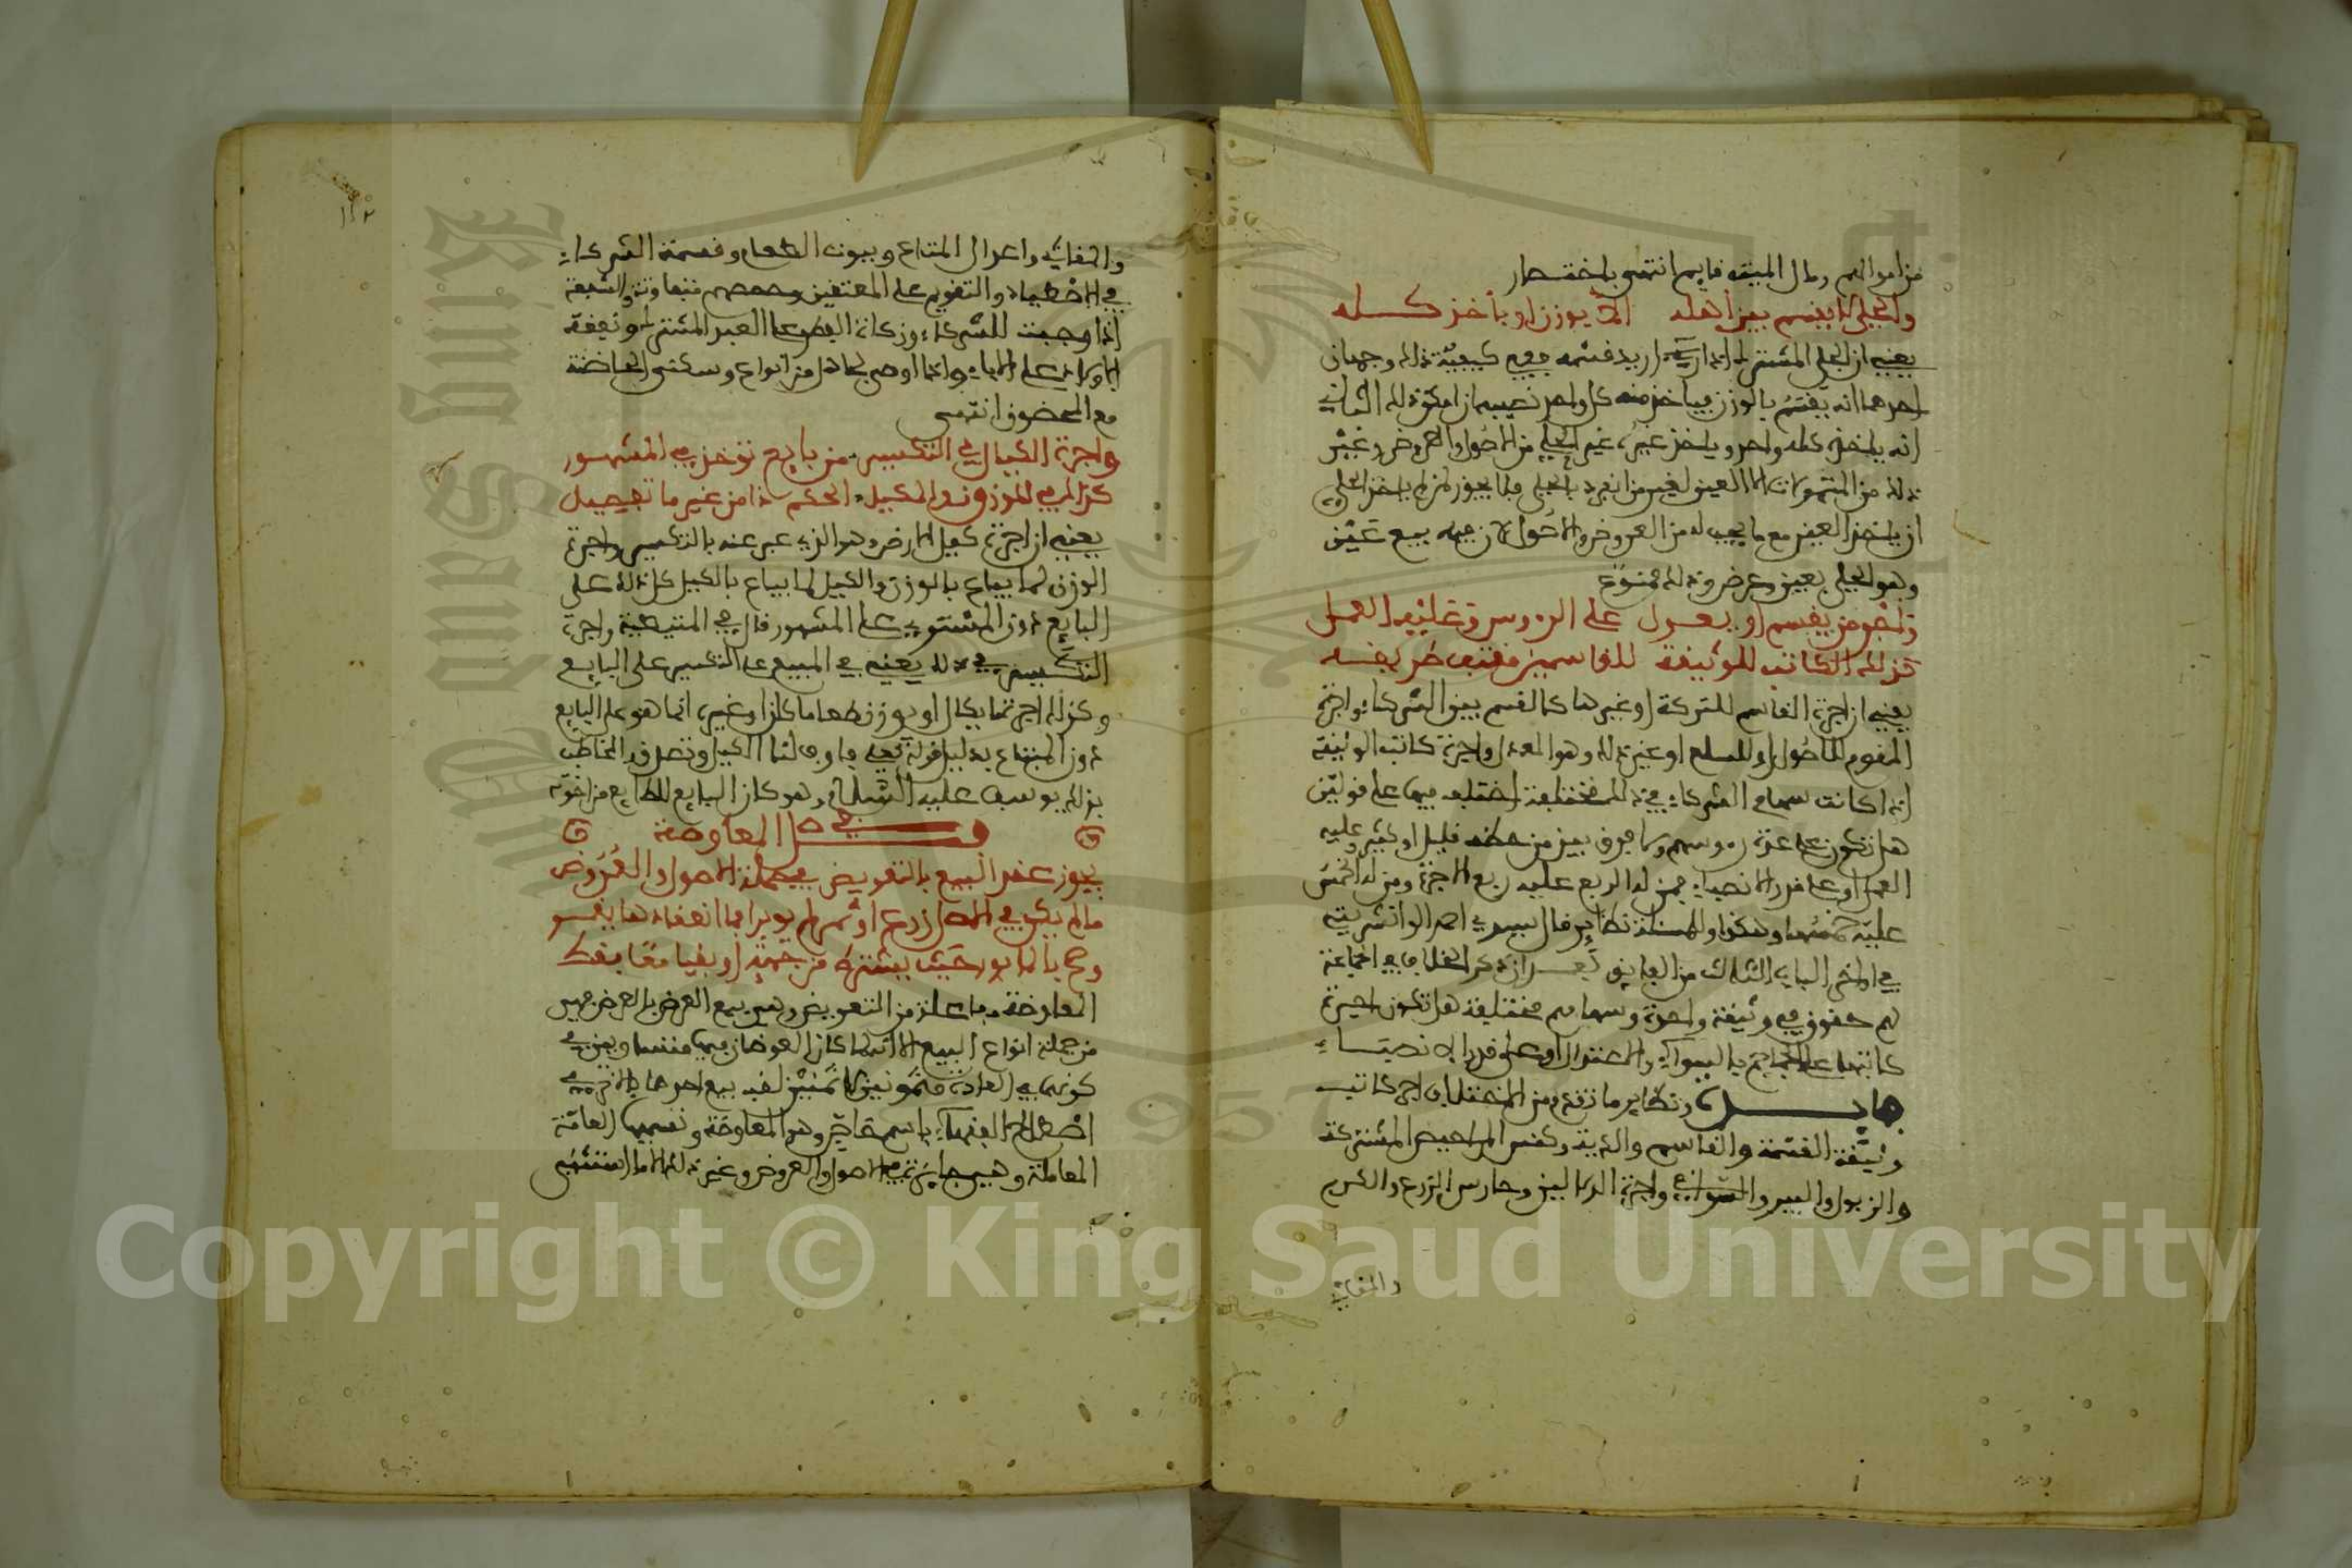 من اموالهم ومال الميت قايم انتهى باختصار
والحلي لا يقسم بين أهله الا بوزن او بأخذ كله
يعني ان الحلي المشترك اذا اريد قسمه ففي كيفية ذلك وجهان
احدهما انه يقسم بالوزن فياخذ منه كل واحد نصيبه ان امكن ذلك الثاني
انه ياخذه كله واحد وياخذ غيره غير الحلي من الاصول والعروض وغير
ذلك من المتمولات الا العين لغير من انفرد بالحلي فلا يجوز لمن لم ياخذ الحلي
ان ياخذ العين مع ما يجب له من العروض والاصول لان فيه بيع عين
وهو الحلي بعين وعرض وذلك ممنوع
وأجر من يقسم او يعدل على الرءوس وعليه العمل
كذلك الكاتب للوثيقة للقاسمين مقتف طريقه
يعني ان اجرة القاسم للتركة او غيرها كالقسم بين الشركاء واجرة
المقوم للاصول او للسلع او غير ذلك وهو المعدل واجرة كاتب الوثيقة
اذا كانت سهام الشركاء في ذلك مختلفة اختلف فيها على قولين
هل تكون على عدد رءوسهم ولا فرق بين من حظه قليل او كثير وعليه
العمل او على قدر الانصباء فمن له الربع عليه ربع الاجرة ومن له الخمس
عليه خمسها وهكذا وللمسئلة نظاير قال سيدي احمد الوانشريشي
في اواخر الباب الثالث من الفايق بعد ان ذكر الخلاف في الجماعة
لهم حقوق في وثيقة واحدة وسهامهم مختلفة هل تكون اجرة
كاتبها على الجماجم بالسواء والاعتدال او على قدر الانصباء
ونظاير ما تقدم من الاختلاف اجر كاتب
وثيقة القسمة والقاسم والدية وكنس المراحيض المشتركة
والزبول والبير والسواقي واجرة الدلالين وحارس الزرع والكرم
والمقاثي
١١٢
والمقاثي واعدال المتاع وبيوت الطعام وقسمة الشركاء
في الاصطياد والتقويم على المعتقين وحصصهم متفاوتة والشفعة
اذا وجبت للشركاء وزكاة الفطر على العبد المشترك ونفقة
الاولاد على الاباء واذا اوصى بمجاهل من انواع وسكنى الحاضنة
مع المحضون انتهى
واجرة الكيال في التكسير من بايع تؤخذ في المشهور
كذاك في الموزون والمكيل الحكم ذا من غير ما تفصيل
يعني ان اجرة كيل الارض وهو الذي عبر عنه بالتكسير واجرة
الوزن لما يباع بالوزن والكيل لما يباع بالكيل كل ذلك على
البايع دون المشتري على المشهور قال في المتيطية واجرة
التكسير في ذلك يعني في المبيع على التكسير على البايع
وكذلك اجرة ما يكال او يوزن طعاما كان او غيره انما هو على البايع
دون المبتاع بدليل قوله تعالى فاوف لنا الكيل وتصدق المخاطب
بذلك يوسف عليه السلام وهو كان البايع للطعام من اخوته
فصل في المعاوضة
يجوز عقد البيع بالتعويض في جملة الاصول والعروض
ما لم يكن في الاصل زرع او ثمر لم يوبرا فما انعقادها يقر
وصح بالمابور حيث يشترط من جهة او بقيا معا فقط
المعاوضة مفاعلة من التعويض وهي بيع العرض بالعرض فهي
من جملة انواع البيع الا انه لما كان العوضان فيها متساويين في
كونهما في العادة مثمونين لا ثمنين لقب بيع احدهما بالاخر في
اصطلاح الفقهاء باسم خاص وهو المعاوضة وتسميها العامة
المعاملة وهي جايزة في الاصول والعروض وغير ذلك الا ما استثني